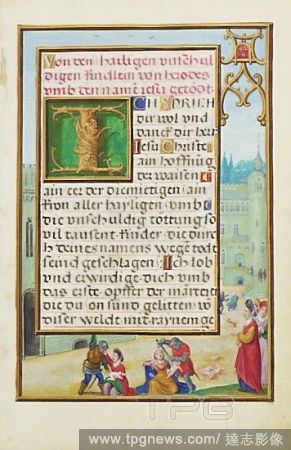 Von den hailigen unschul
digen kindlein von herodes
umb den namen iesu getödt
ICH SPRICH
dir wol und
danck dir herr
Iesu Christe
ain hoffnung
der waisen
ain eer der diemietigen ain
kron aller hayligen umb
die unschuldig tottung so
vil tausent kinder die durch
deines namens wegen todt
seind geschlagen Ich lob
und erwirdige dich umb
das erste opffer der marterer
die du on sünd gelitten
diser weldt mit raynem ge
TPG
www.tpgnews.com / 達志影像